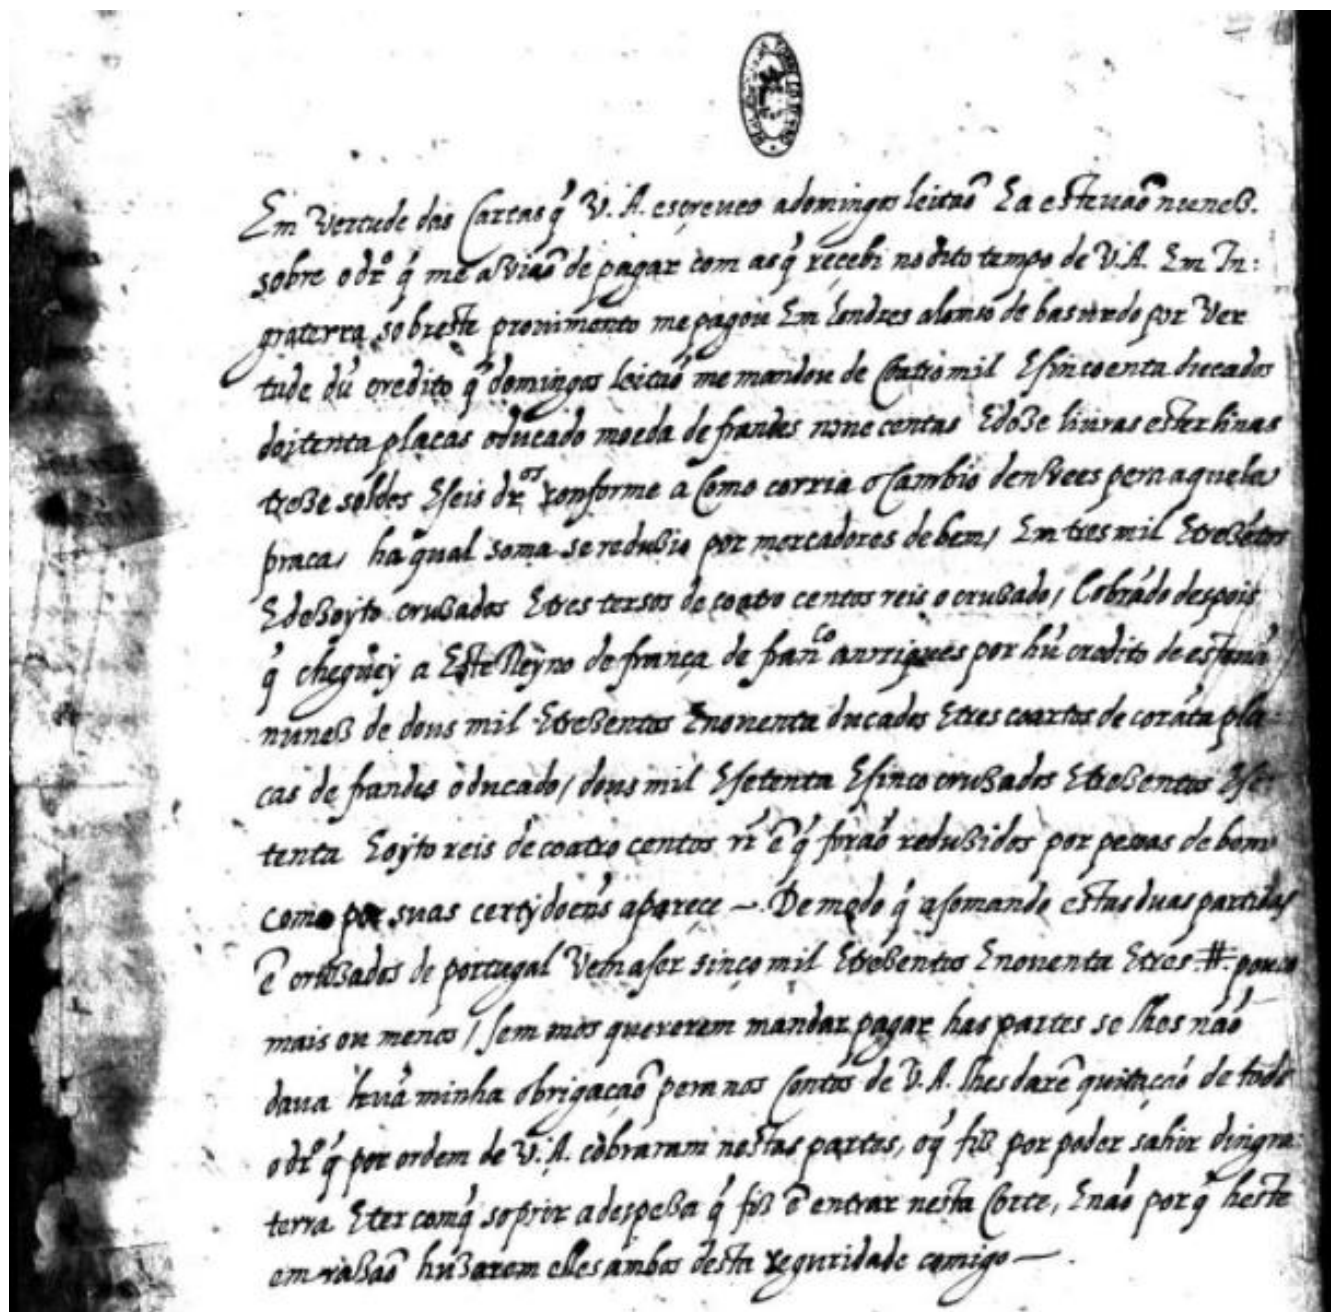 Em vertude das Cartas q̃ V. A. escreveo a domingos leitaõ E a estevaõ nuneß.
sobre o drº q̃ me aviaõ de pagar com as q̃ recebi no dito tempo de V.A. Em In:
graterra, sobreste provimento me pagou Em londres alonso de basurdo por ver
tude dũ credito q̃ domingos leitaõ me mandou de Coatro mil E sincoenta ducados
doitenta placas o ducado moeda de frandes nove centas E doze livras esterlinas
treze soldos E seis drºˢ conforme a Como corria o Cambio denvees pera aquela
praca, ha qual soma se reduzio por mercadores de bem, Em tres mil E trezẽtos
E dezoyto cruzados E tres tersos de coatro centos reis o cruzado, Cobrãdo despois
q̃ cheguey a Este Reyno de frança de franᶜᵒ anrriques por hũ credito de estevã
nuneß de dous mil E trezentos E noventa ducados E tres coartos de corẽta pla:
cas de frandes o ducado, dous mil E setenta E sinco cruzados E trezentos E se:
tenta E oyto reis de coatro centos rˢ ẽ q̃ foraõ reduzidos por pesoas de bem
como por suas certydoẽns aparece — De modo q̃ asomando estas duas partidas
ẽ cruzados de portugal vem a ser sinco mil E trezentos E noventa E tres .#. pouco
mais ou menos / sem mos quererem mandar pagar has partes se lhes naõ
dava hũa minha obrigaçaõ pera nos Contos de V.A. lhes darẽ quitaçaõ de todo
o drº q̃ por ordem de V.A. cobraram nestas partes, o q̃ fiz por poder sahir dingra:
terra E ter com q̃ soprir a despeza q̃ fiz ẽ entrar nesta Corte, E naõ por q̃ heste
em razaõ huzarem elles ambos desta seguridade comigo —